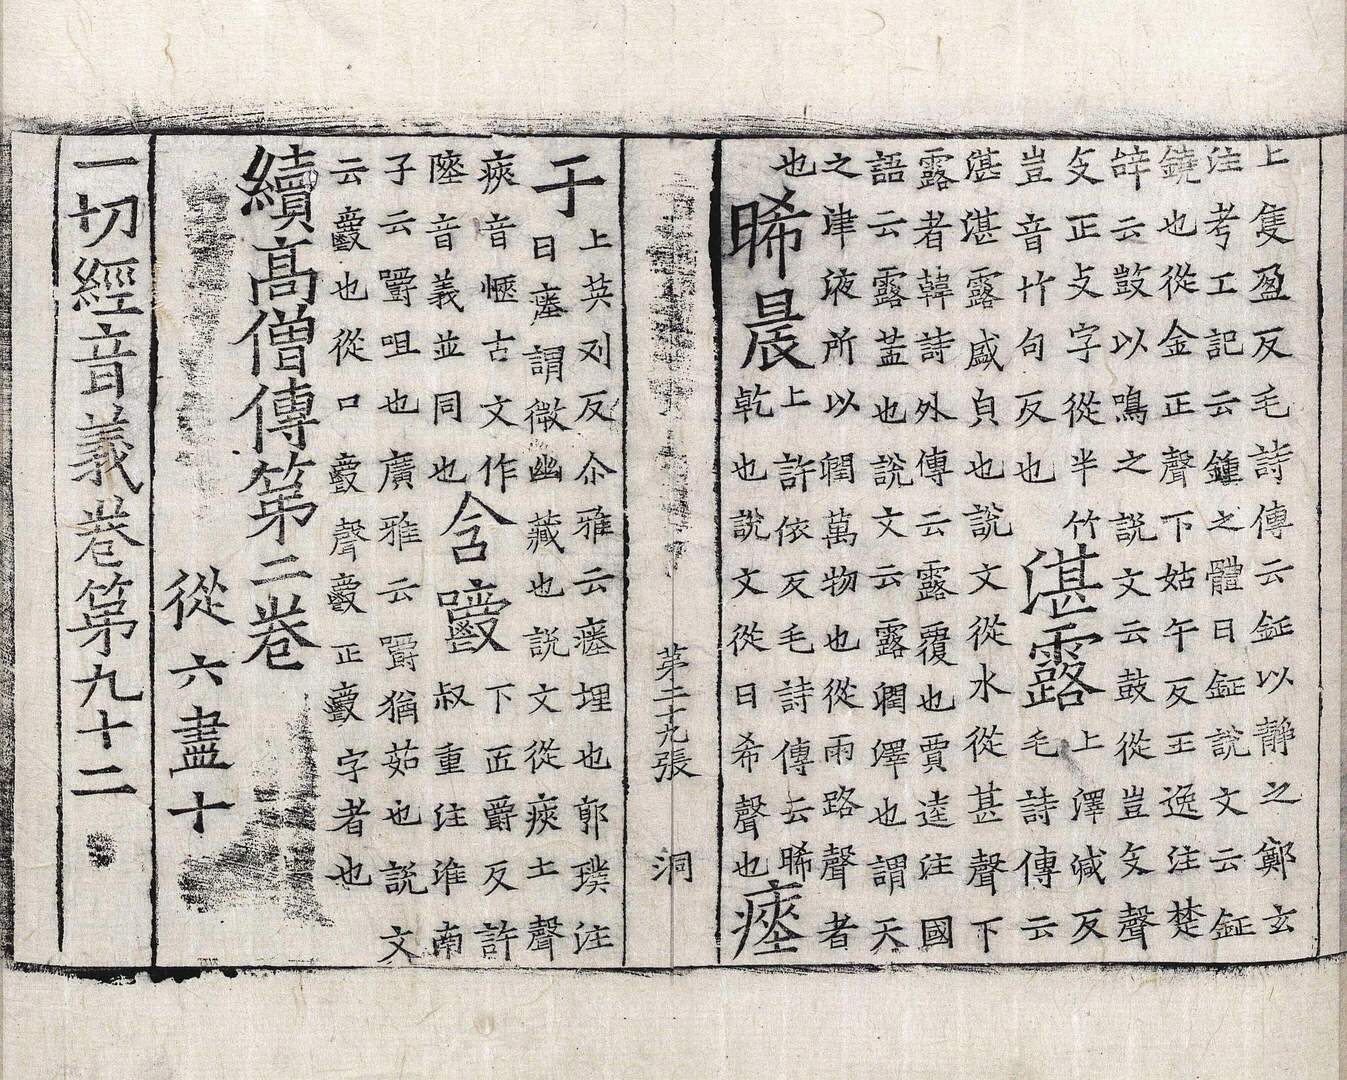 上隻盈反毛詩傳云鉦以靜之鄭玄
注考工記云鍾之體曰鉦說文云鉦
鐃也從金正聲下姑午反王逸注楚
辝云鼓以鳴之說文云鼓從豈攴聲
攴正攴字從半竹
豈音竹句反也
湛露
上澤減反
毛詩傳云
湛湛露盛皃也說文從水從甚聲下
露者韓詩外傳云露覆也賈逵注國
語云露葢也說文云露潤澤也謂天
之津液所以潤萬物也從雨路聲者
也
晞晨
上許依反毛詩傳云晞
乾也說文從日希聲也
瘞
第二十九張 洞
于
上英列反尒雅云瘞埋也郭璞注
曰瘞謂微幽藏也説文從㾜土聲
㾜音愜古文作
音義並同也
含
下匠爵反許
叔重注淮南
子云嚼咀也廣雅云嚼猶茹也説文
云也從口聲正字者也
續髙僧傳第二卷
從六盡十
一切經音義卷第九十二